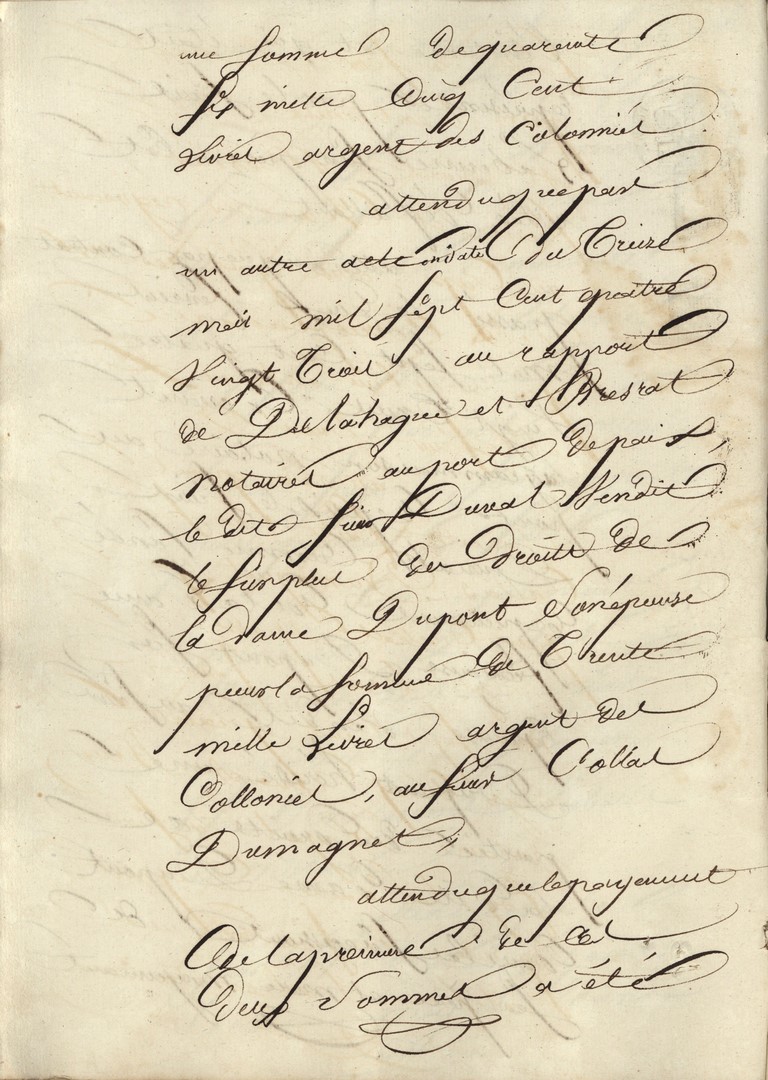 une somme de quarente
Six mille Cinq Cent
Livres argent des Colonnies
attendu que par
un autre acte en date du Treize
mars mil Sept Cent quatre
Vingt Trois au rapport
de Delahague et
notaires au port depaix,
le dit Sieur Duval Vendit
le Surplus des droits de
la dame Dupont Son épouse
pour la Somme de Trente
mille Livres argent des
Colloniel, au Sieur Collas
Dumagnet,
attendu que le payement
de la premiere de ces
deux Sommes a été